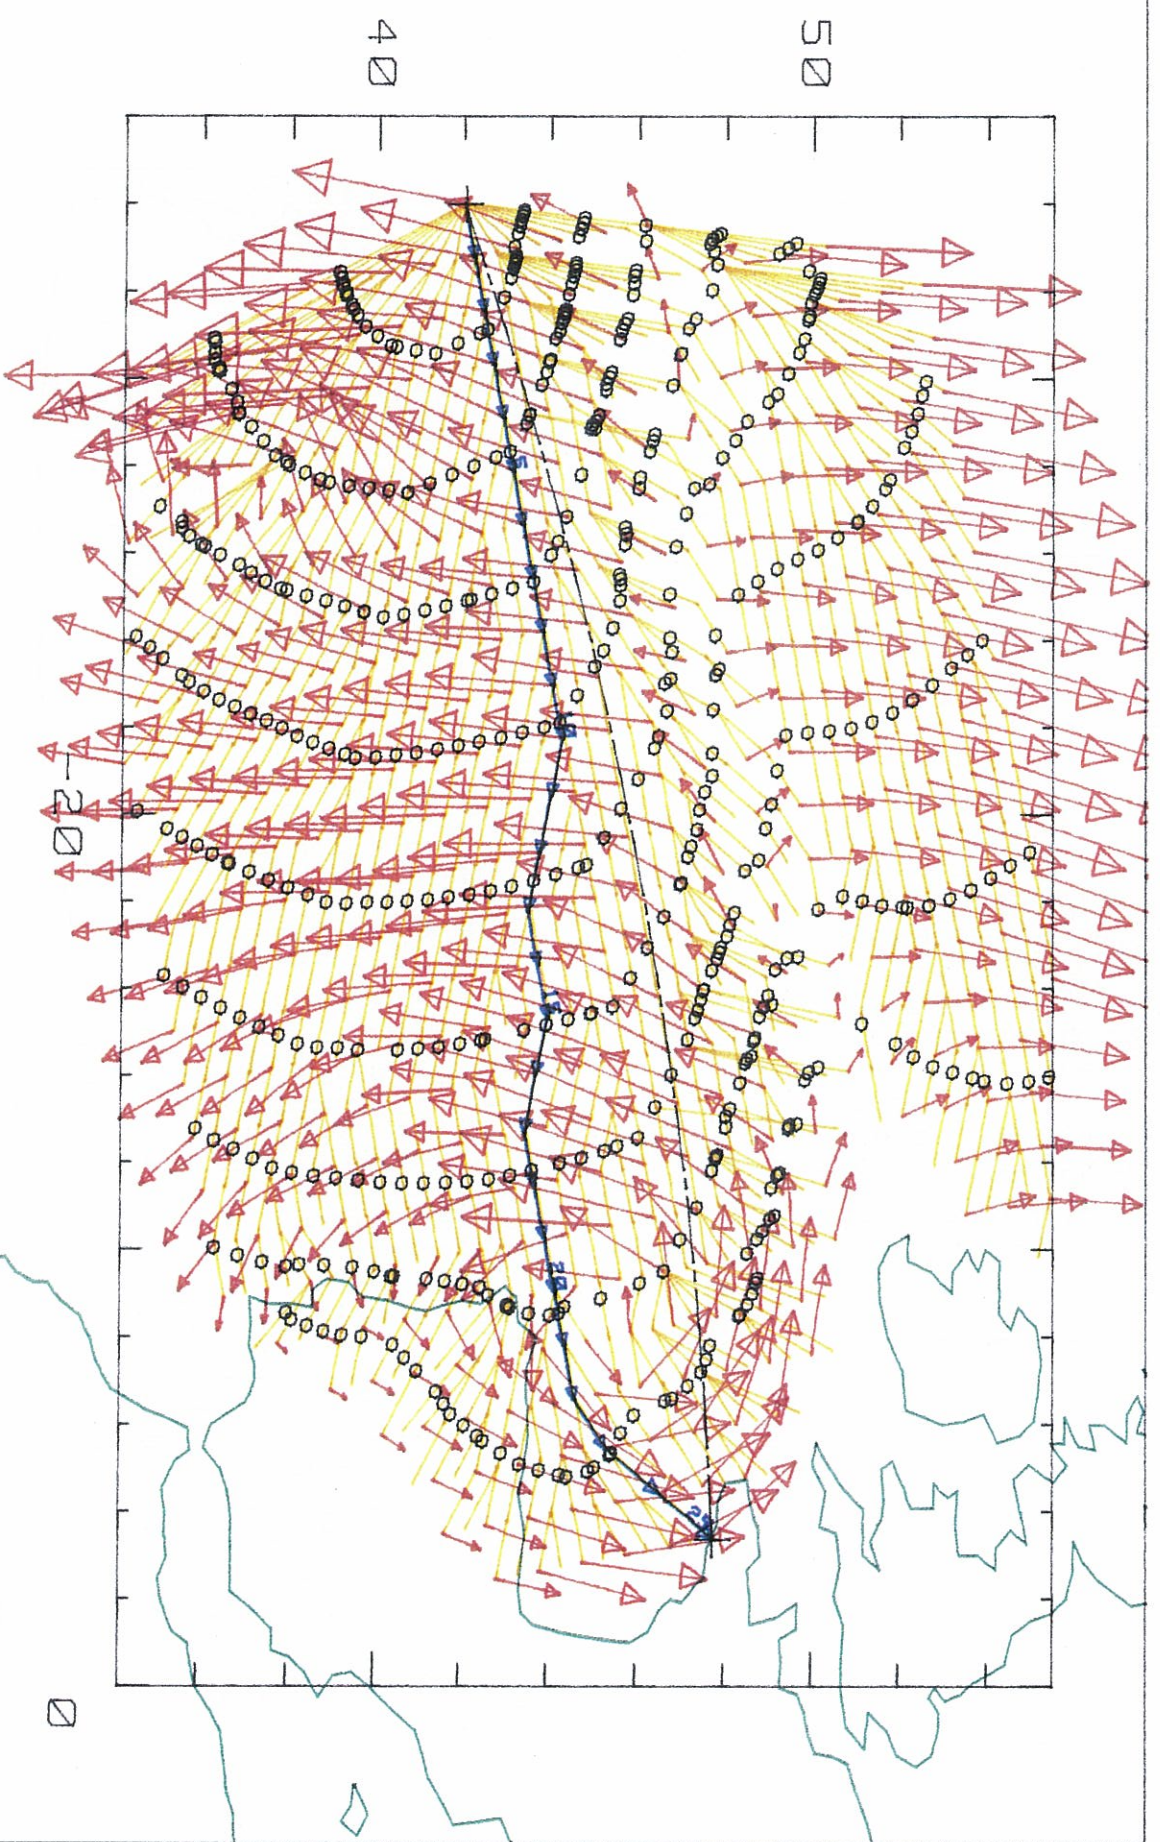 40
50
-20
0
5
10
15
20
25